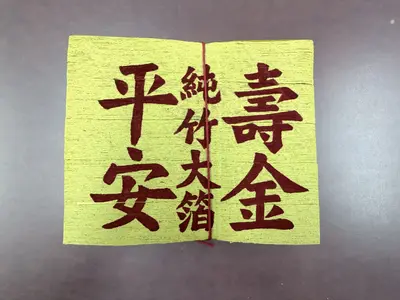 壽金
純竹大箔
平安